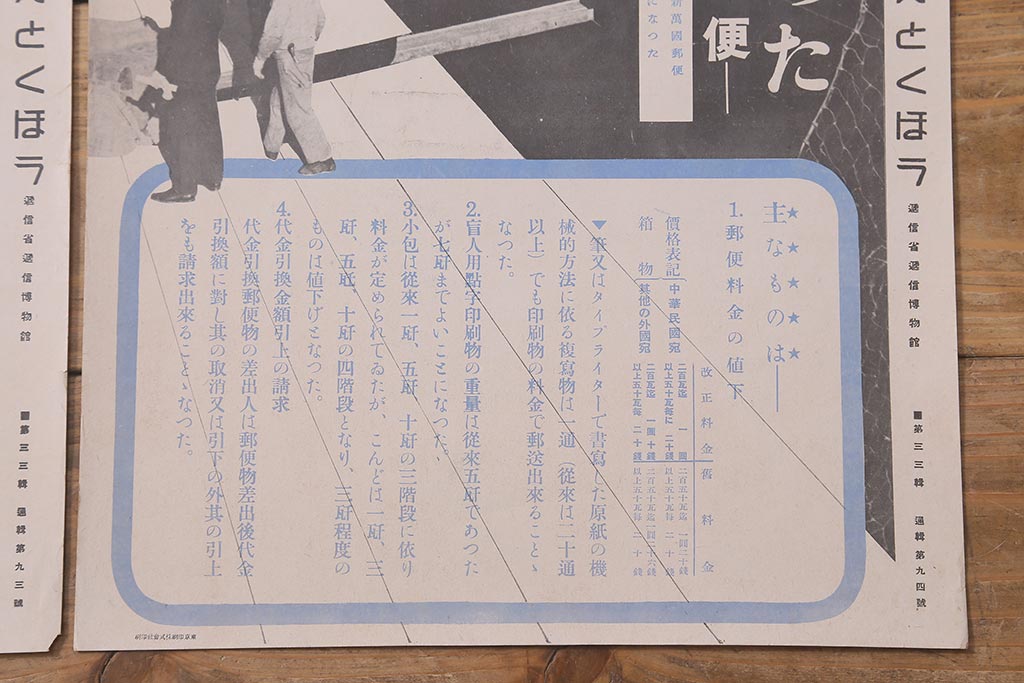 とくほラ
遞信省遞信博物館
■第三三輯　週輯第九四號
つた
便―
新萬國郵便
になつた
主なものは――
★★★★★
1.郵便料金の値下
改正料金　舊料金
價格表記（中華民國宛　二百瓦迄　一圓　二百五十瓦迄　一圓二十錢
以上五十瓦每に　二十錢　以上五十瓦每　二十錢
箱物（其他の外國宛　二百瓦迄　一圓十錢　二百五十瓦迄　一圓二十六錢
以上五十瓦每　二十錢　以上五十瓦每　二十錢
▼筆又はタイプライターで書寫した原紙の機
械的方法に依る複寫物は一通（從來は二十通
以上）でも印刷物の料金で郵送出來ることゝ
なつた。
2.盲人用點字印刷物の重量は從來五瓩であつた
が七瓩までよいことになつた。
3.小包は從來一瓩、五瓩、十瓩の三階段に依り
料金が定められてゐたが、こんどは一瓩、三
瓩、五瓩、十瓩の四階段となり、三瓩程度の
ものは値下げとなつた。
4.代金引換金額引上の請求
代金引換郵便物の差出人は郵便物差出後代金
引換額に對し其の取消又は引下の外其の引上
をも請求出來ることゝなつた。
東京印刷株式會社印刷
とくほラ
遞信省遞信博物館
■第三三輯　週輯第九三號